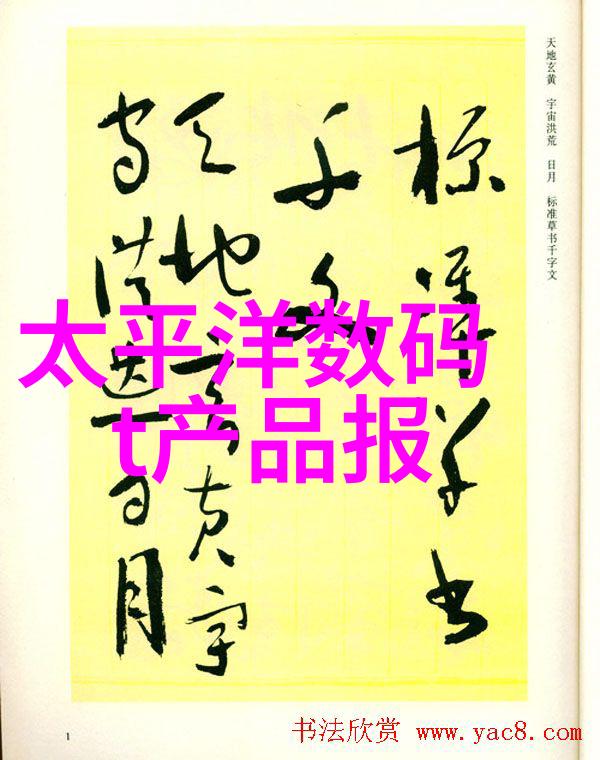 天地玄黄 宇宙洪荒 日月 标准草书千字文
标准草书
千文
天地玄黄宇
宙洪荒日月
太平洋数码
t产品报
1
书法欣赏 www.yac8.com